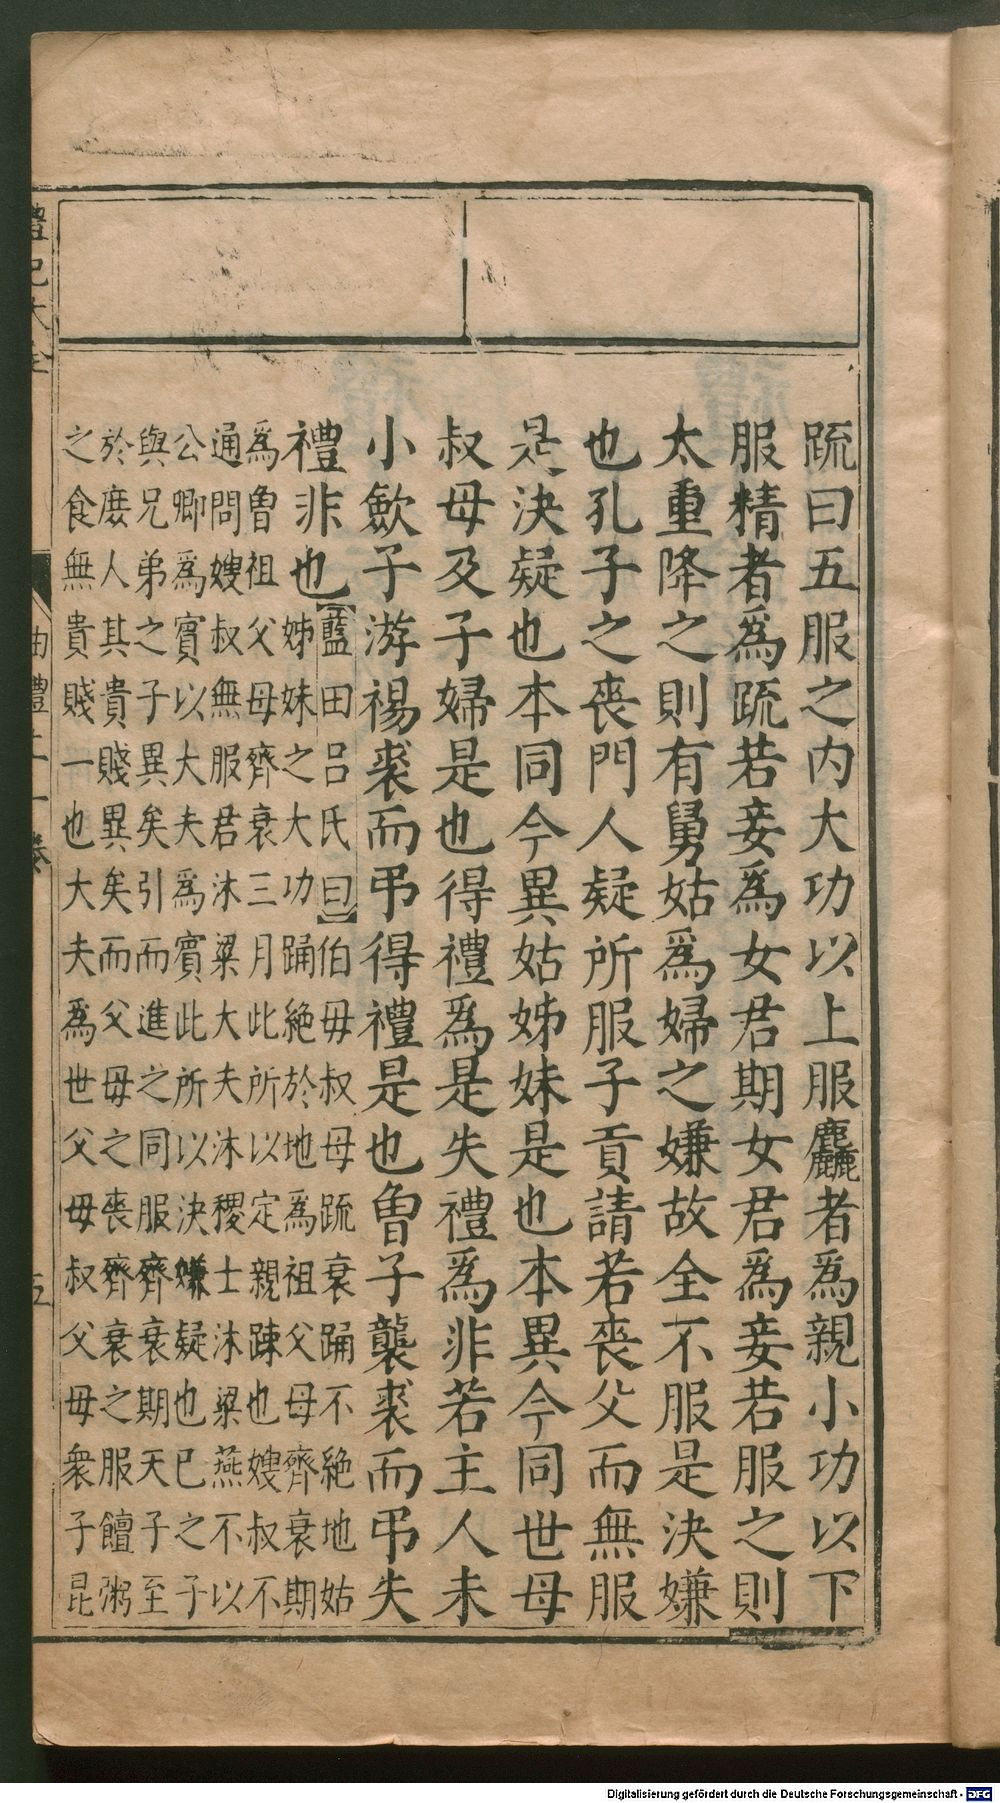 疏曰五服之内大功以上服麤者爲親小功以下
服精者爲疏若妾爲女君期女君爲妾若服之則
太重降之則有舅姑爲婦之嫌故全不服是決嫌
也孔子之喪門人疑所服子貢請若喪父而無服
是決疑也本同今異姑姊妹是也本異今同世母
叔母及子婦是也得禮爲是失禮爲非若主人未
小歛子游裼裘而弔得禮是也曾子襲裘而弔失
禮非也【藍田呂氏曰】伯母叔母疏衰踊不絶地姑
姊妹之大功踊絶於地爲祖父母齊衰期
爲曾祖父母齊衰三月此所以定親踈也嫂叔不
通問嫂叔無服君沐粱大夫沐稷士沐粱燕不以
公卿爲賓以大夫爲賓此所以決嫌疑也已之子
與兄弟之子異矣引而進之同服齊衰期天子至
於庶人其貴賤異矣而父母之喪齊衰之服饘粥
之食無貴賤一也大夫爲世父母叔父母衆子昆
禮記大全
曲禮上一卷
五
Digitalisierung gefördert durch die Deutsche Forschungsgemeinschaft - DFG